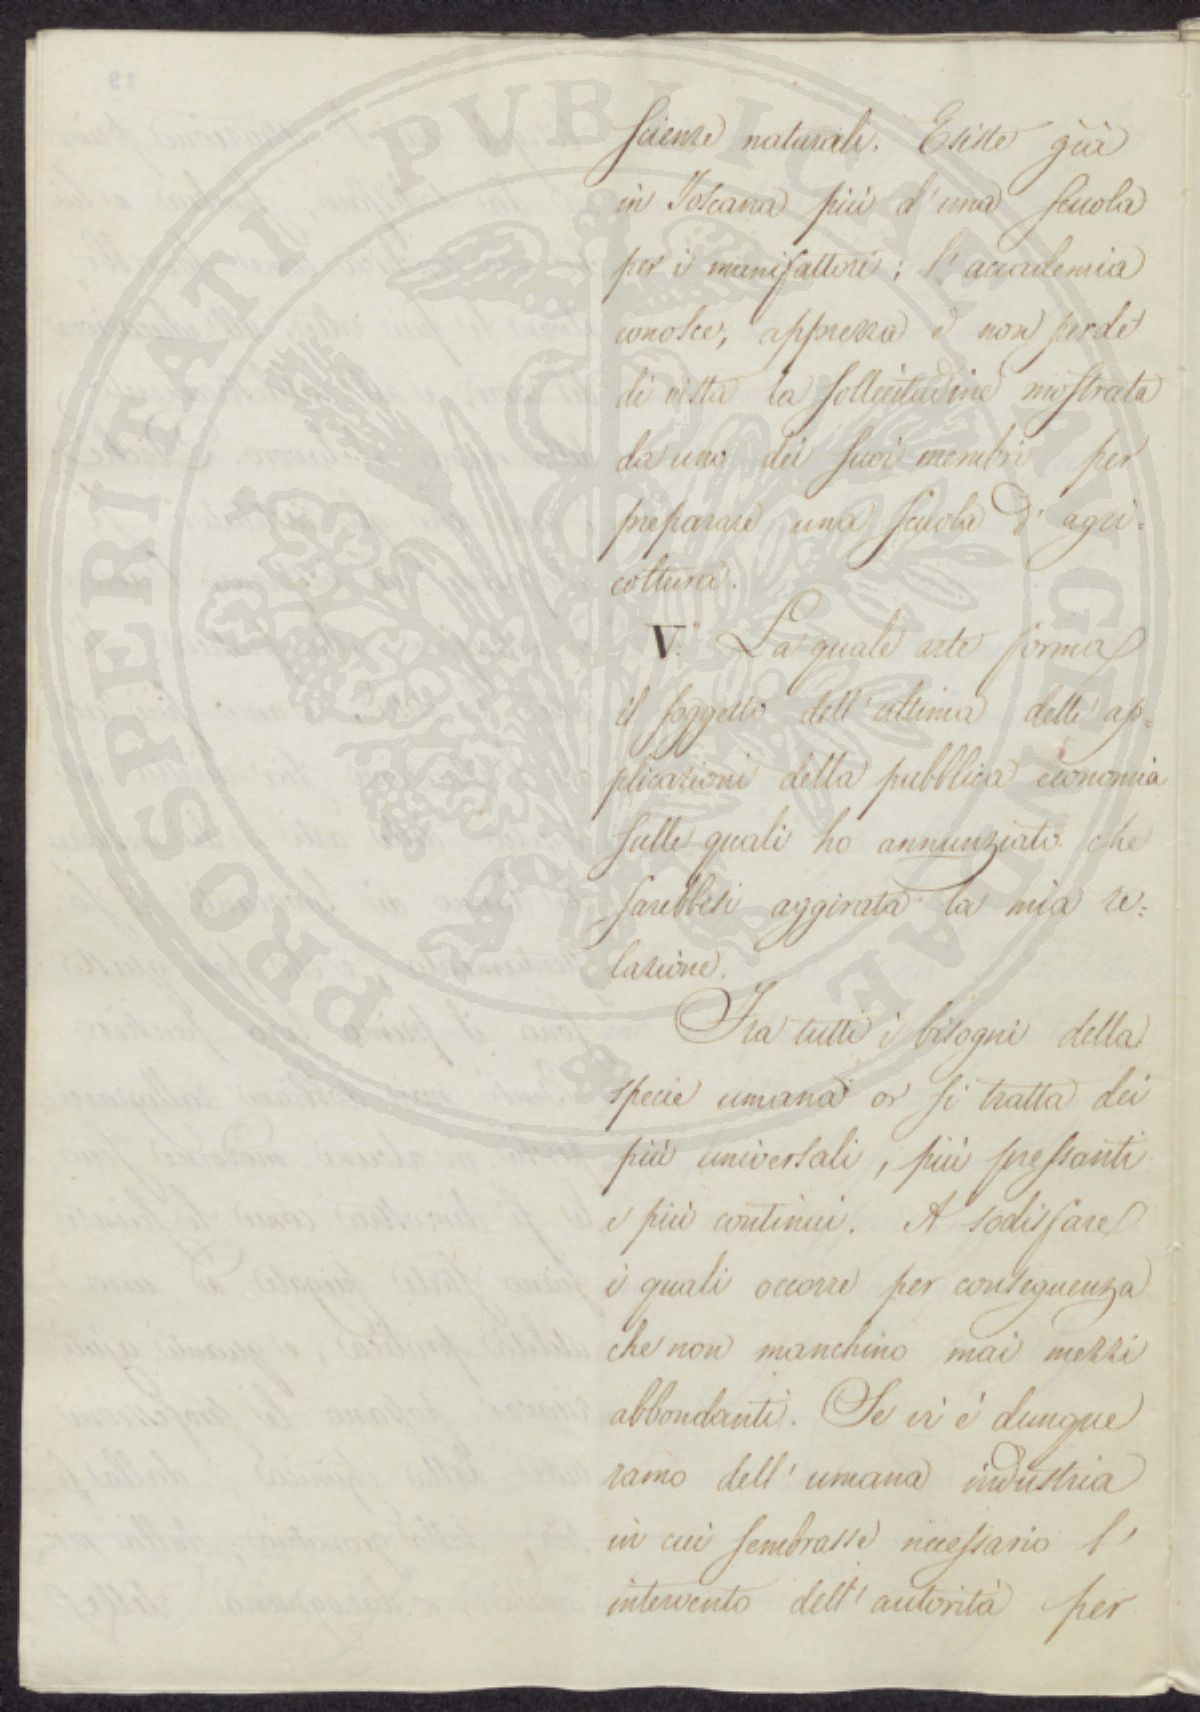 Scienze naturali. Esiste già
in Toscana più d'una scuola
per i manifattori; l'accademia
conosce, apprezza e non perde
di vista la sollecitudine mostrata
da uno dei suoi membri per
preparare una scuola d'agri-
coltura.
V.° La quale arte forma
il soggetto dell'ultima delle ap=
plicazioni della pubblica economia
sulle quali ho annunziato che
sarebbesi aggirata la mia re=
lazione.
Fra tutti i bisogni della
specie umana or si tratta dei
più universali, più pressanti
e più continui. A sodisfare
i quali occorre per conseguenza
che non manchino mai mezzi
abbondanti. Se vi è dunque
ramo dell'umana industria
in cui sembrasse necessario l'
intervento dell'autorità per
PROSPERITATI PUBLICAE AUGENDAE
19